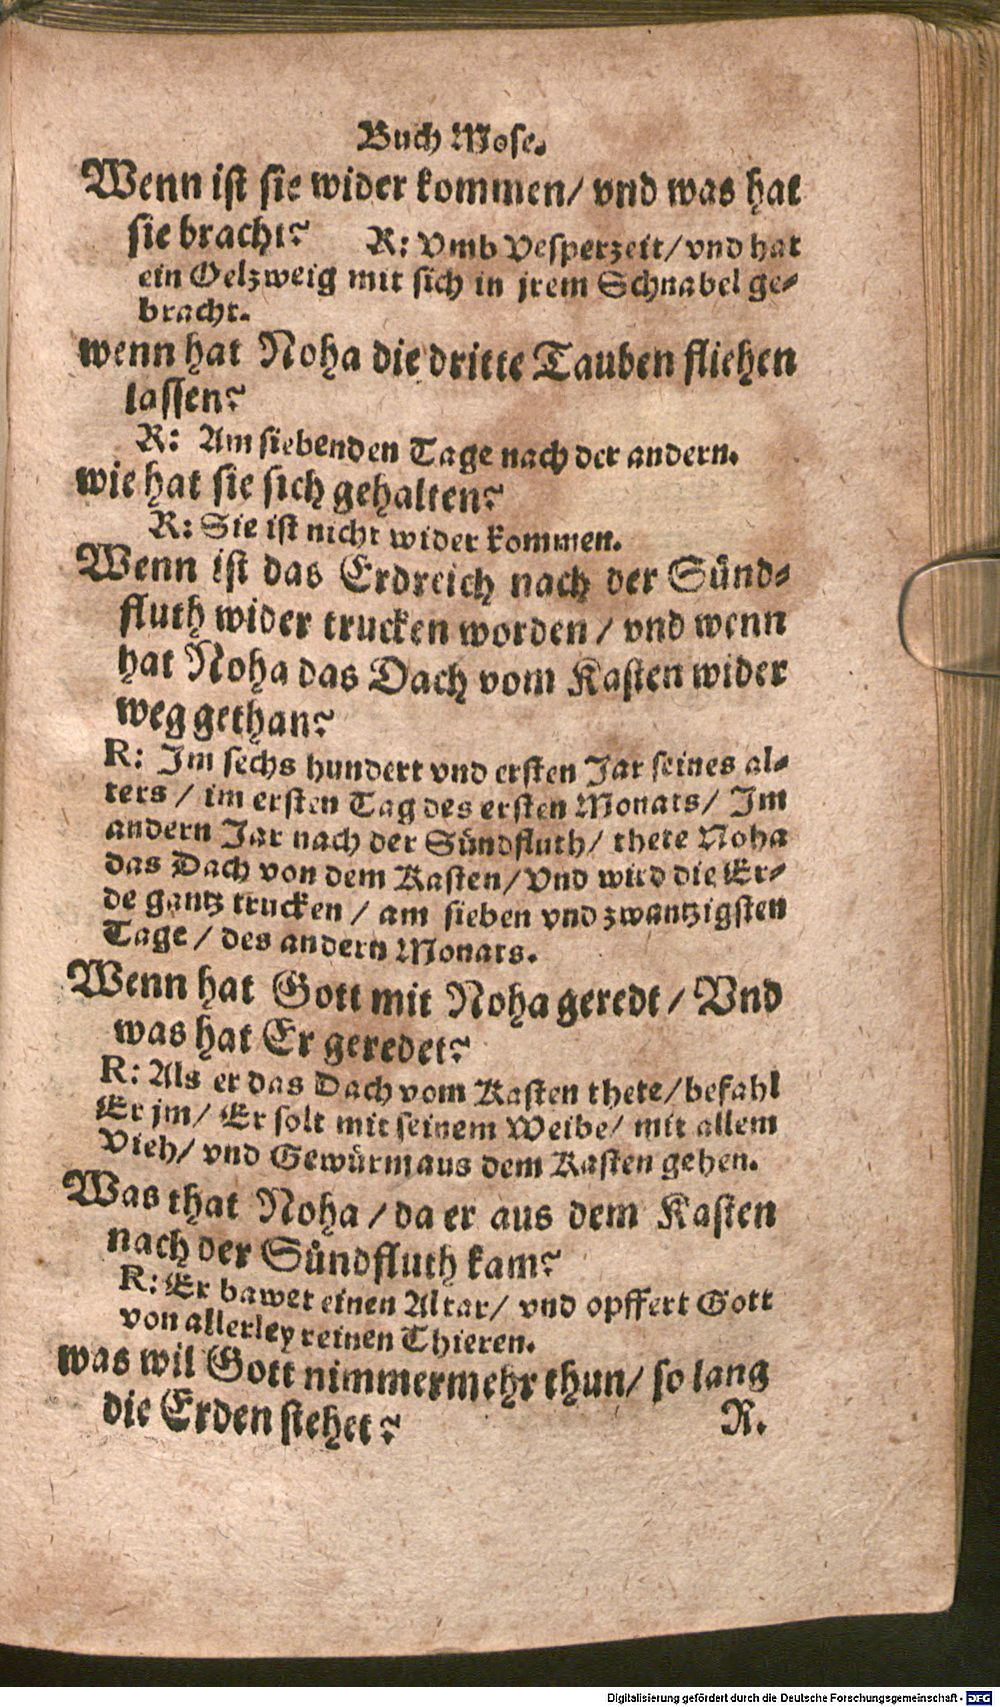 Buch Mose.
Wenn ist sie wider kommen/ vnd was hat
sie bracht? R: Vmb Vesperzeit/ vnd hat
ein Oelzweig mit sich in jrem Schnabel ge-
bracht.
wenn hat Noha die dritte Tauben fliehen
lassen?
R: Am siebenden Tage nach der andern.
wie hat sie sich gehalten?
R: Sie ist nicht wider kommen.
Wenn ist das Erdreich nach der Sünd-
fluth wider trucken worden/ vnd wenn
hat Noha das Dach vom Kasten wider
weg gethan?
R: Im sechs hundert vnd ersten Jar seines al-
ters/ im ersten Tag des ersten Monats/ Im
andern Jar nach der Sündfluth/ thete Noha
das Dach von dem Kasten/ Vnd wird die Er-
de gantz trucken/ am sieben vnd zwantzigsten
Tage/ des andern Monats.
Wenn hat Gott mit Noha geredt/ Vnd
was hat Er geredet?
R: Als er das Dach vom Kasten thete/ befahl
Er jm/ Er solt mit seinem Weibe/ mit allem
Vieh/ vnd Gewürm aus dem Kasten gehen.
Was that Noha/ da er aus dem Kasten
nach der Sündfluth kam?
R: Er bawet einen Altar/ vnd opffert Gott
von allerley reinen Thieren.
was wil Gott nimmermehr thun/ so lang
die Erden stehet? R.
Digitalisierung gefördert durch die Deutsche Forschungsgemeinschaft - DFG